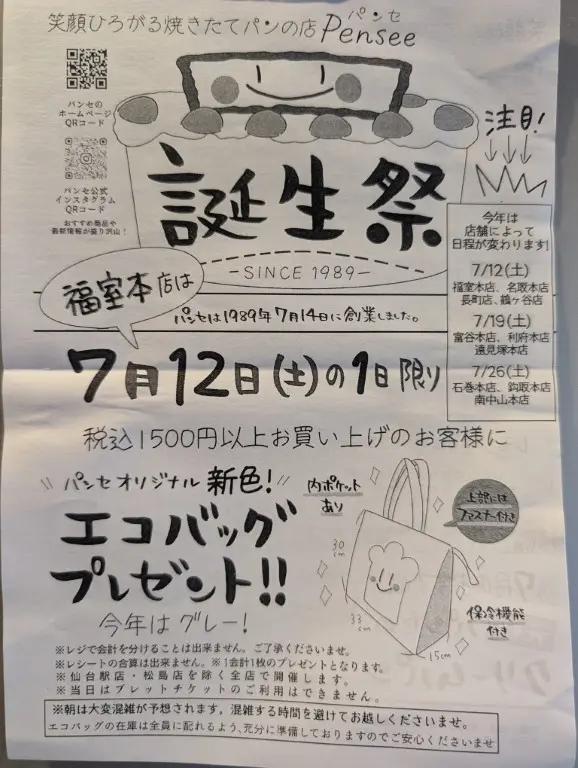 笑顔ひろがる焼きたてパンの店 Pensee
パンセ
パンセの
ホームページ
QRコード
パンセ公式
インスタグラム
QRコード
おすすめ商品や
最新情報が盛り沢山!
注目!
誕生祭
-SINCE 1989-
今年は
店舗によって
日程が変わります!
7/12(土)
福室本店、名取本店
長町店、鶴ヶ谷店
7/19(土)
富谷本店、利府本店
遠見塚本店
7/26(土)
石巻本店、鈎取本店
南中山本店
福室本店は
パンセは1989年7月14日に創業しました。
7月12日(土)の1日限り
税込1500円以上お買い上げのお客様に
パンセオリジナル 新色!
エコバッグ
プレゼント!!
今年はグレー!
内ポケット
あり
上部には
ファスナー付き
30cm
33cm
15cm
保冷機能
付き
※レジで会計を分けることは出来ません。ご了承くださいませ。
※レシートの合算は出来ません。※1会計1枚のプレゼントとなります。
※仙台駅店・松島店を除く全店で開催します。
※当日はブレットチケットのご利用はできません。
※朝は大変混雑が予想されます，混雑する時間を避けてお越しくださいませ。
エコバッグの在庫は全員に配れるよう、充分に準備しておりますのでご安心くださいませ